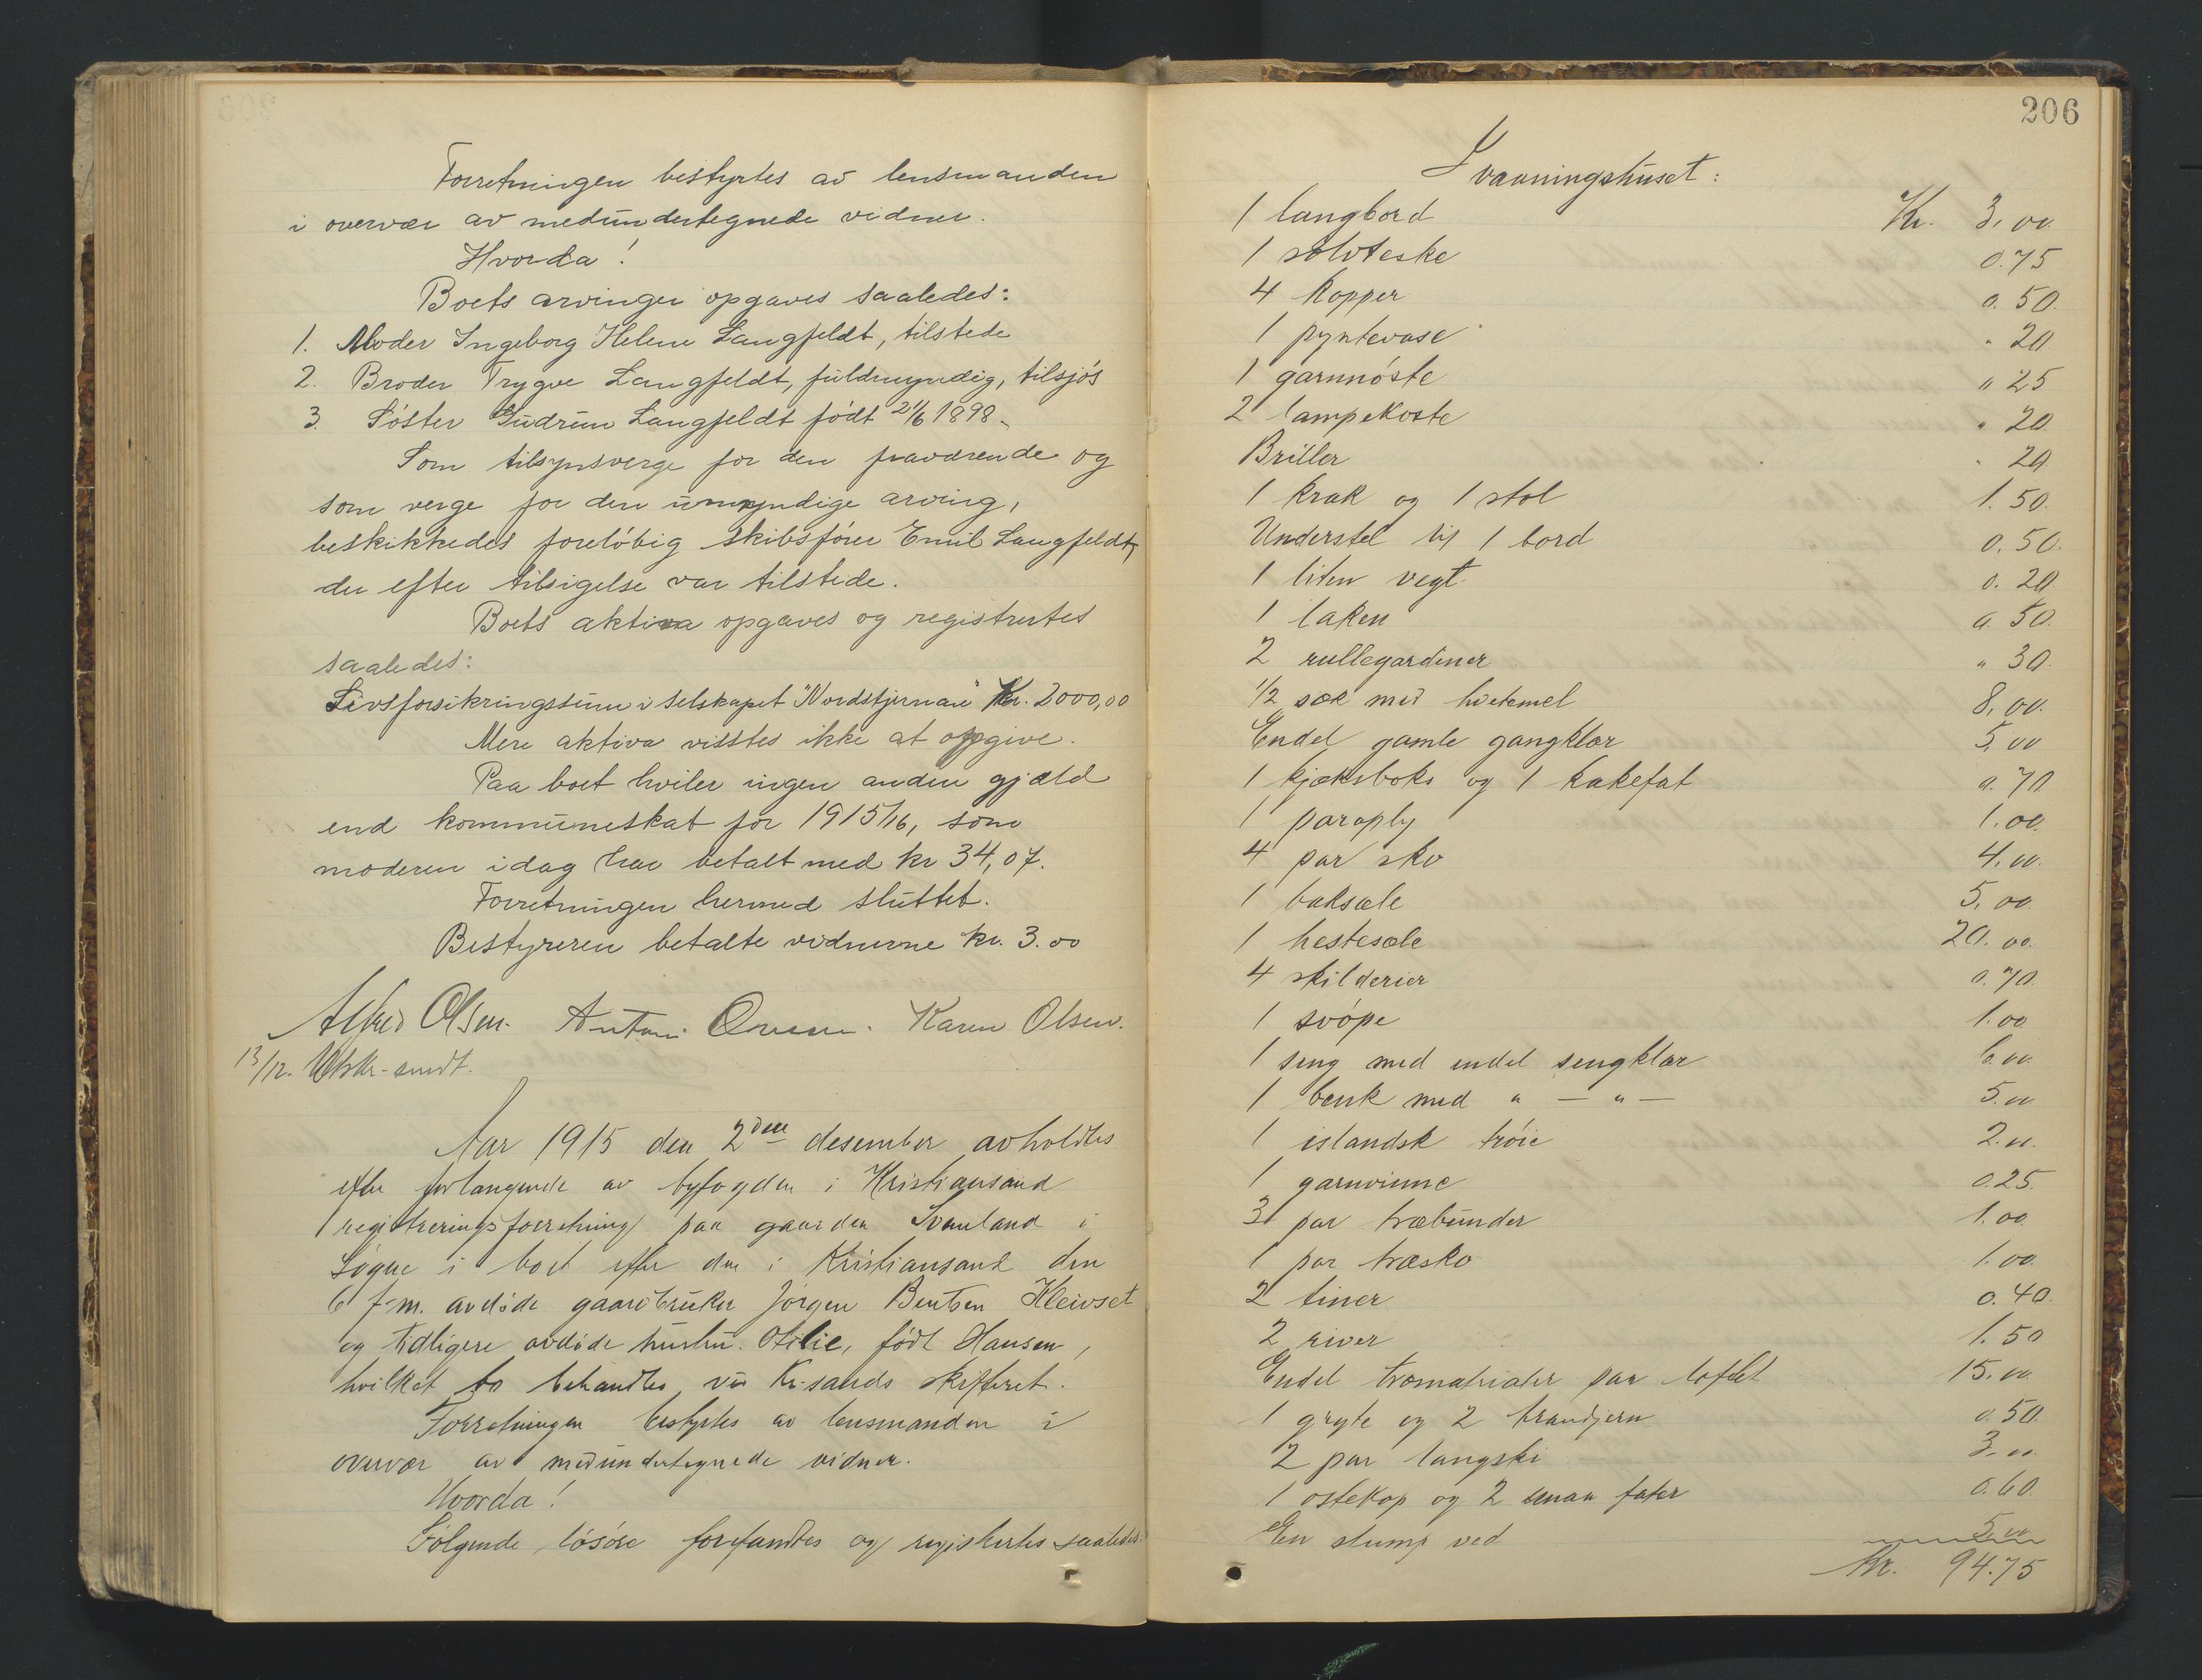 Forretningen bestyrtes av lensmanden
i overvær av medundertegnede vidner.
Hvorda!
Boets arvinger opgaves saaledes:
1. Moder Ingeborg Helene Langfeldt, tilstede
2. Broder Trygve Langfeldt, fuldmyndig, tilsjøs
3. Søster Gudrun Langfeldt født 21/6 1898.
Som tilsynsverge for den fraværende og
som verge for den umyndige arving,
beskikkedes foreløbig skibsfører Emil Langfeldt,
der efter tilsigelse var tilstede.
Boets aktiva opgaves og registrertes
saaledes:
Livsforsikringssum i selskapet "Nordstjernan" Kr. 2000,00
Mere aktiva visstes ikke at opgive.
Paa boet hviler ingen anden gjæld
end kommuneskat for 1915/16, som
moderen idag har betalt med kr 34,07.
Forretningen hermed sluttet.
Bestyreren betalte vidnerne kr. 3.00
Alfred Olsen. Karen Olsen.
13/12. Utskr. sendt.
Aar 1915 den 2den desember avholdtes
efter forlangende av byfogden i Kristiansand
registreringsforretning paa gaarden Svanland i
Søgne i boet efter den i Kristiansand den
6 f.m. avdøde gaardbruker Jørgen Bentsen Kleivset
og tidligere avdøde hustru Otilie, født Hansen,
hvilket bo behandles ved Kr-sands skifteret.
Forretningen bestyrtes av lensmanden i
overvær av medundertegnede vidner.
Hvorda!
Følgende løsøre forefandtes og registertes saaledes
206
I vaaningshuset:
1 langbord Kr. 3,00
1 sølvteske 0.75
4 kopper 0.50
1 pyntevase " 20
1 garnnøste " 25
2 lampekoste " 20
Briller " 20
1 krak og 1 stol 1.50
Understel til 1 bord 0.50.
1 liten vegt 0.20
1 laken 0.50
2 rullegardiner " 30
1/2 sæk med hvetemel 8,00
Endel gamle gangklær 5,00
1 kjæksboks og 1 kakefat 0.70
1 paraply 1.00
4 par sko 4.00
1 baksæle 5,00
1 hestesæle 20.00
4 skilderier 0.70
1 svøpe 1.00
1 seng med endel sengklær 6.00
1 benk med " — " — 5.00
1 islandsk trøie 2.00
1 garnvinne 0.25
3 par træbunder 1.00
1 par træsko 1.00
2 tiner 0.40
2 river 1.50
Endel træmatrialer paa loftet 15.00
1 gryte og 2 brandjern 0.50
2 par langski 3.00
1 ostekop og 2 smaa fater 0.60
En slump ved 5.00
Kr. 94.75